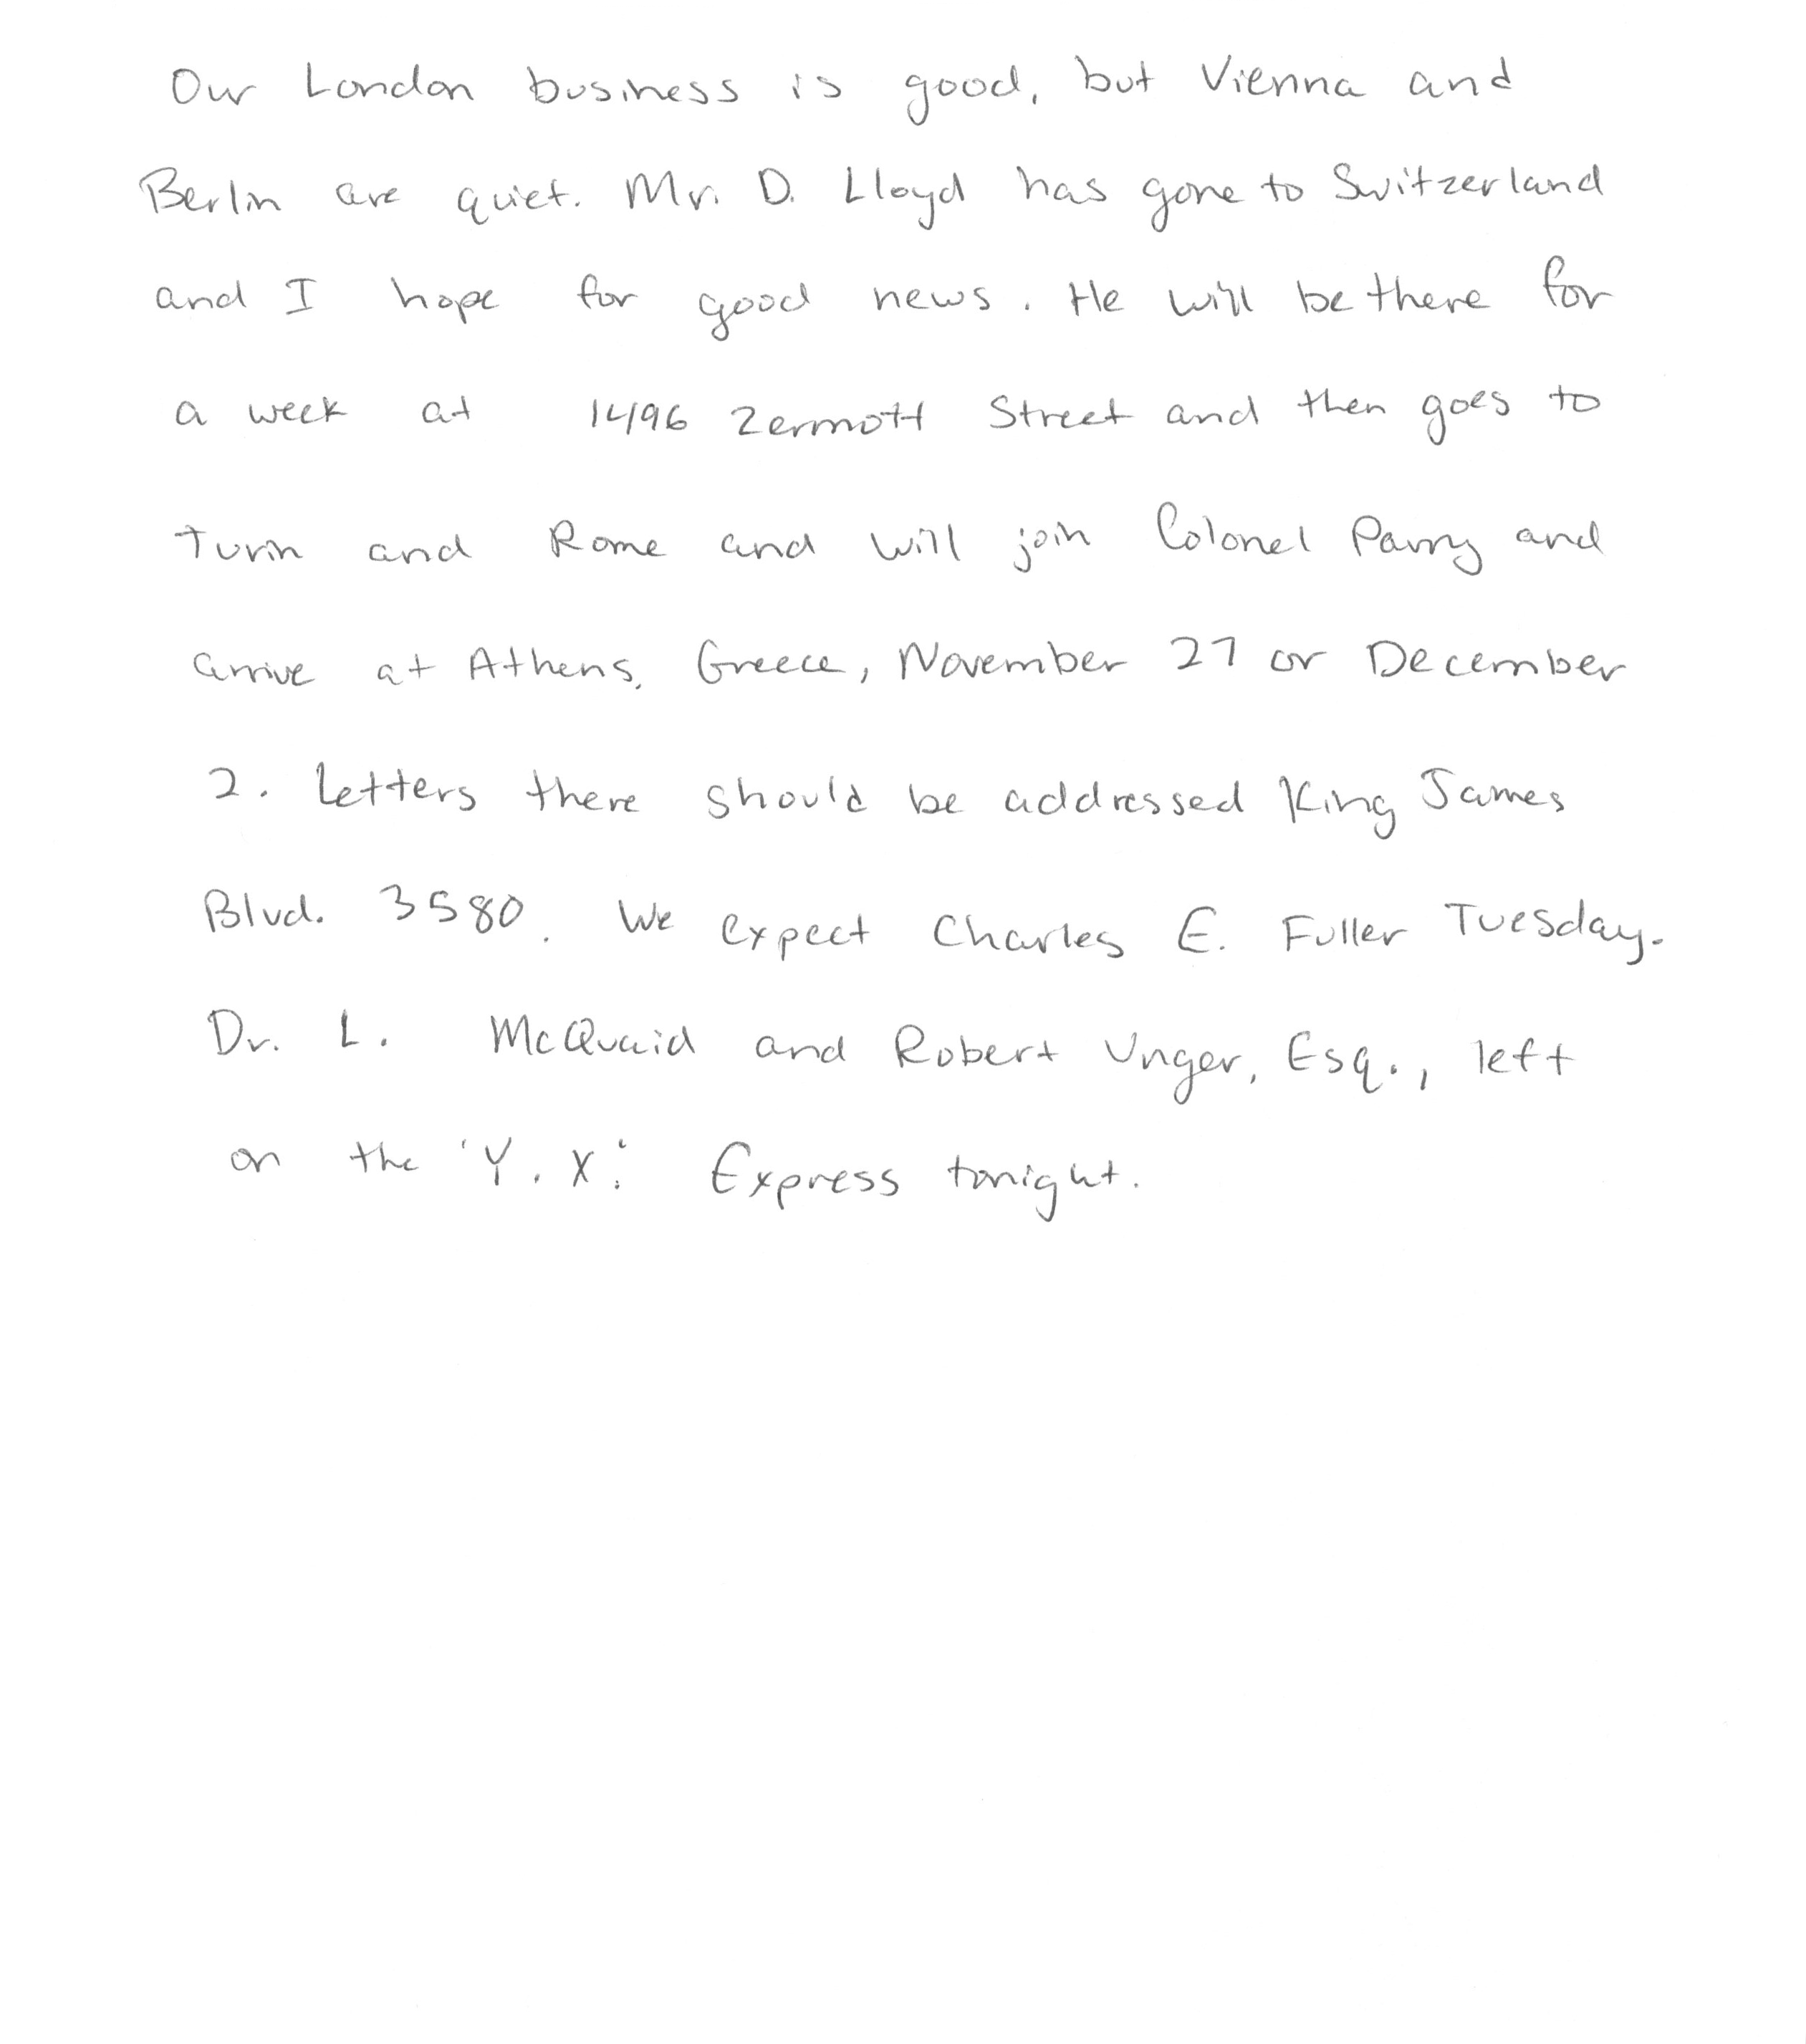 Our London business is good, but Vienna and
Berlin are quiet. Mr. D. Lloyd has gone to Switzerland
and I hope for good news. He will be there for
a week at 1496 Zermott Street and then goes to
Turin and Rome and will join Colonel Parry and
arrive at Athens, Greece, November 27 or December
2. Letters there should be addressed King James
Blvd. 3580. We expect Charles E. Fuller Tuesday.
Dr. L. McQuaid and Robert Unger, Esq., left
on the 'Y. X.' Express tonight.